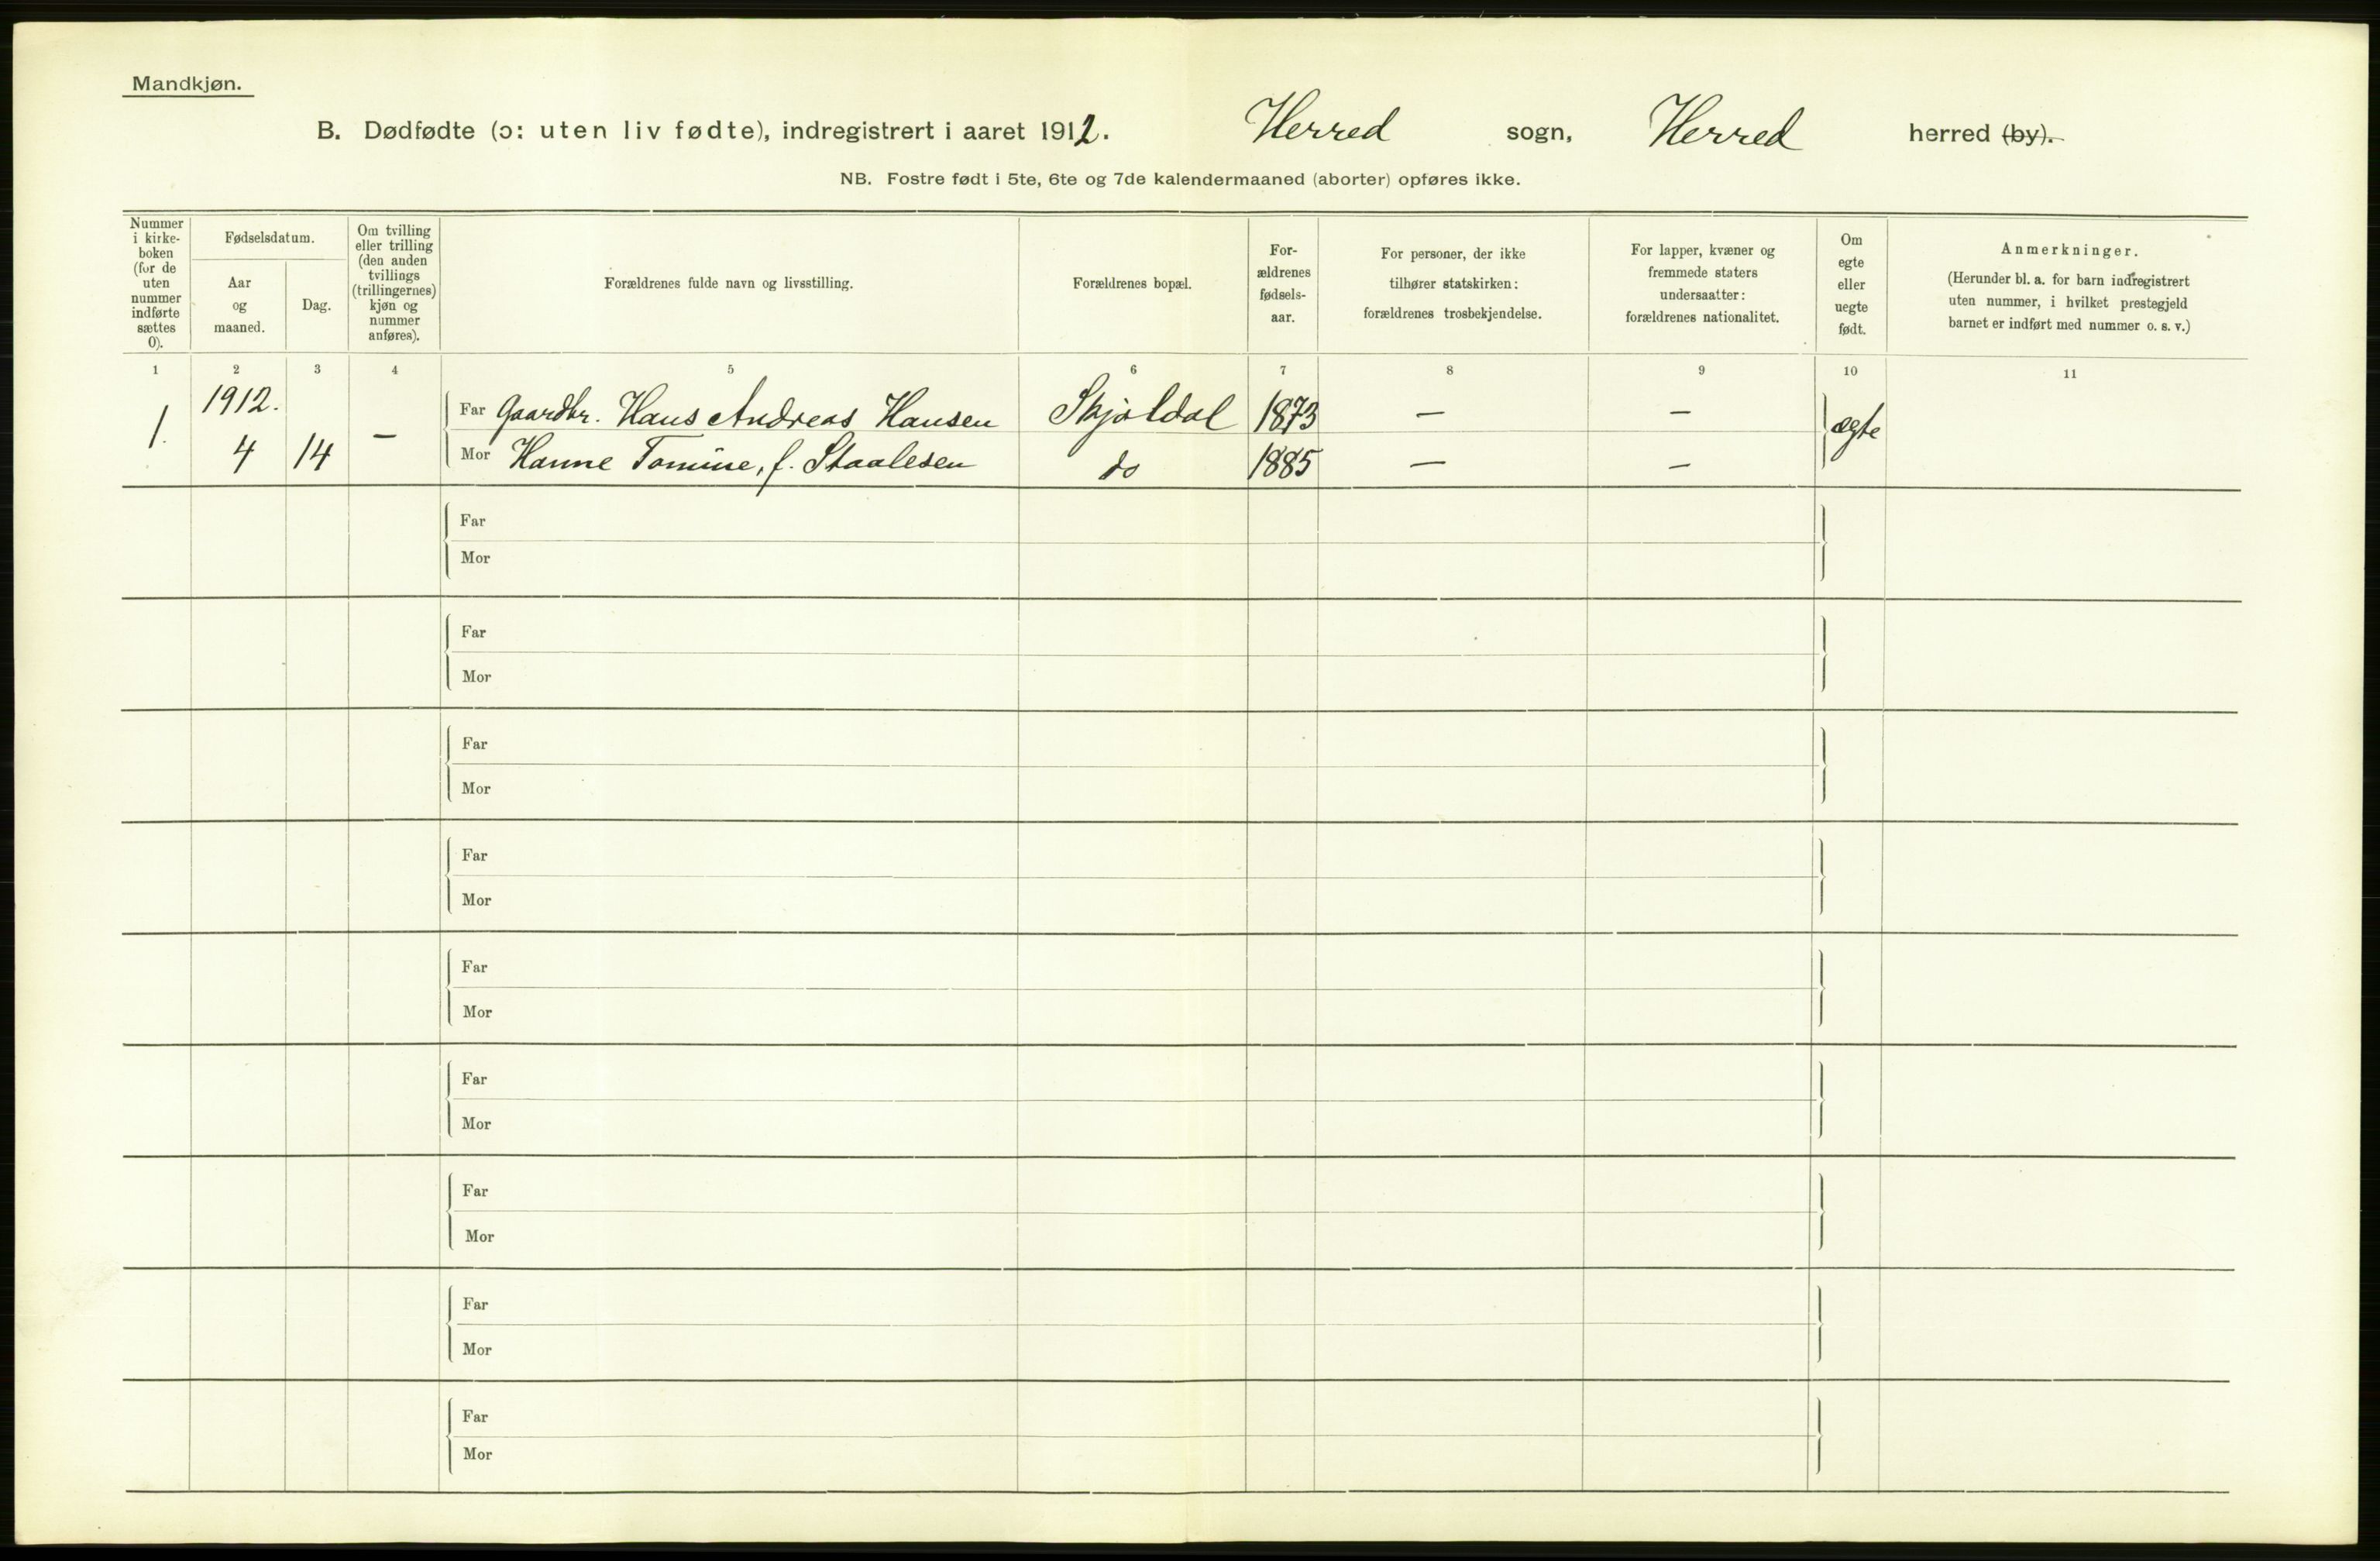 Mandkjøn.
B. Dødfødte (ɔ: uten liv fødte), indregistrert i aaret 1912. Herred sogn, Herred herred (by).
NB. Fostre født i 5te, 6te og 7de kalendermaaned (aborter) opføres ikke.
Nummer
i kirke-
boken
(for de
uten
nummer
indførte
sættes
0).
Fødselsdatum.
Aar
og
maaned.
Dag.
Om tvilling
eller trilling
(den anden
tvillings
(trillingernes)
kjøn og
nummer
anføres).
Forældrenes fulde navn og livsstilling.
Forældrenes bopæl.
For-
ældrenes
fødsels-
aar.
For personer, der ikke
tilhører statskirken:
forældrenes trosbekjendelse.
For lapper, kvæner og
fremmede staters
undersaatter:
forældrenes nationalitet.
Om
egte
eller
uegte
født.
Anmerkninger.
(Herunder bl. a. for barn indregistrert
uten nummer, i hvilket prestegjeld
barnet er indført med nummer o. s. v.)
1 2 3 4 5 6 7 8 9 10 11
1912.
1. – Far Gaardbr. Hans Andreas Hansen Skjoldal 1873 – – ægte
4 14 Mor Hanne Tomine, f. Staalesen do 1885 – –
Far
Mor
Far
Mor
Far
Mor
Far
Mor
Far
Mor
Far
Mor
Far
Mor
Far
Mor
Far
Mor